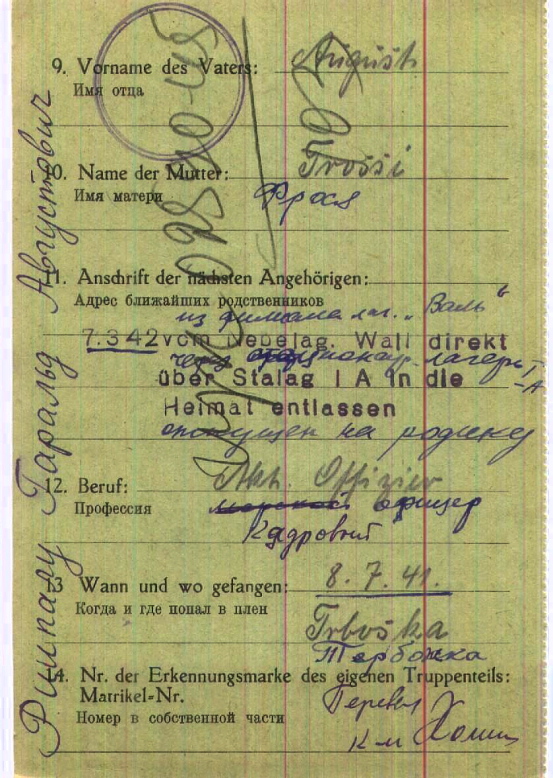 9. Vorname des Vaters: August
Имя отца
10. Name der Mutter: Trossi
Имя матери Фрося
11. Anschrift der nächsten Angehörigen:
Адрес ближайших родственников
из филиала лаг. „Валь“
7.3.42 vom Nebelag. Wall direkt
через лагерь I-A
über Stalag I A in die
Heimat entlassen
отпущен на родину
12. Beruf: Akt. Offizier
Профессия морской офицер
Кадровый
13 Wann und wo gefangen: 8. 7. 41.
Когда и где попал в плен
Trboška
Тербошка
14. Nr. der Erkennungsmarke des eigenen Truppenteils:
Matrikel-Nr.
Номер в собственной части
Перевел
к-н
Риипалу Гаральд Августович